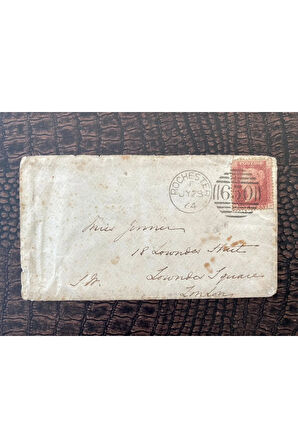 ROCHESTER
JY 23
64
650
Miss Jenner
18 Lowndes Street
Lowndes Square
S.W. London